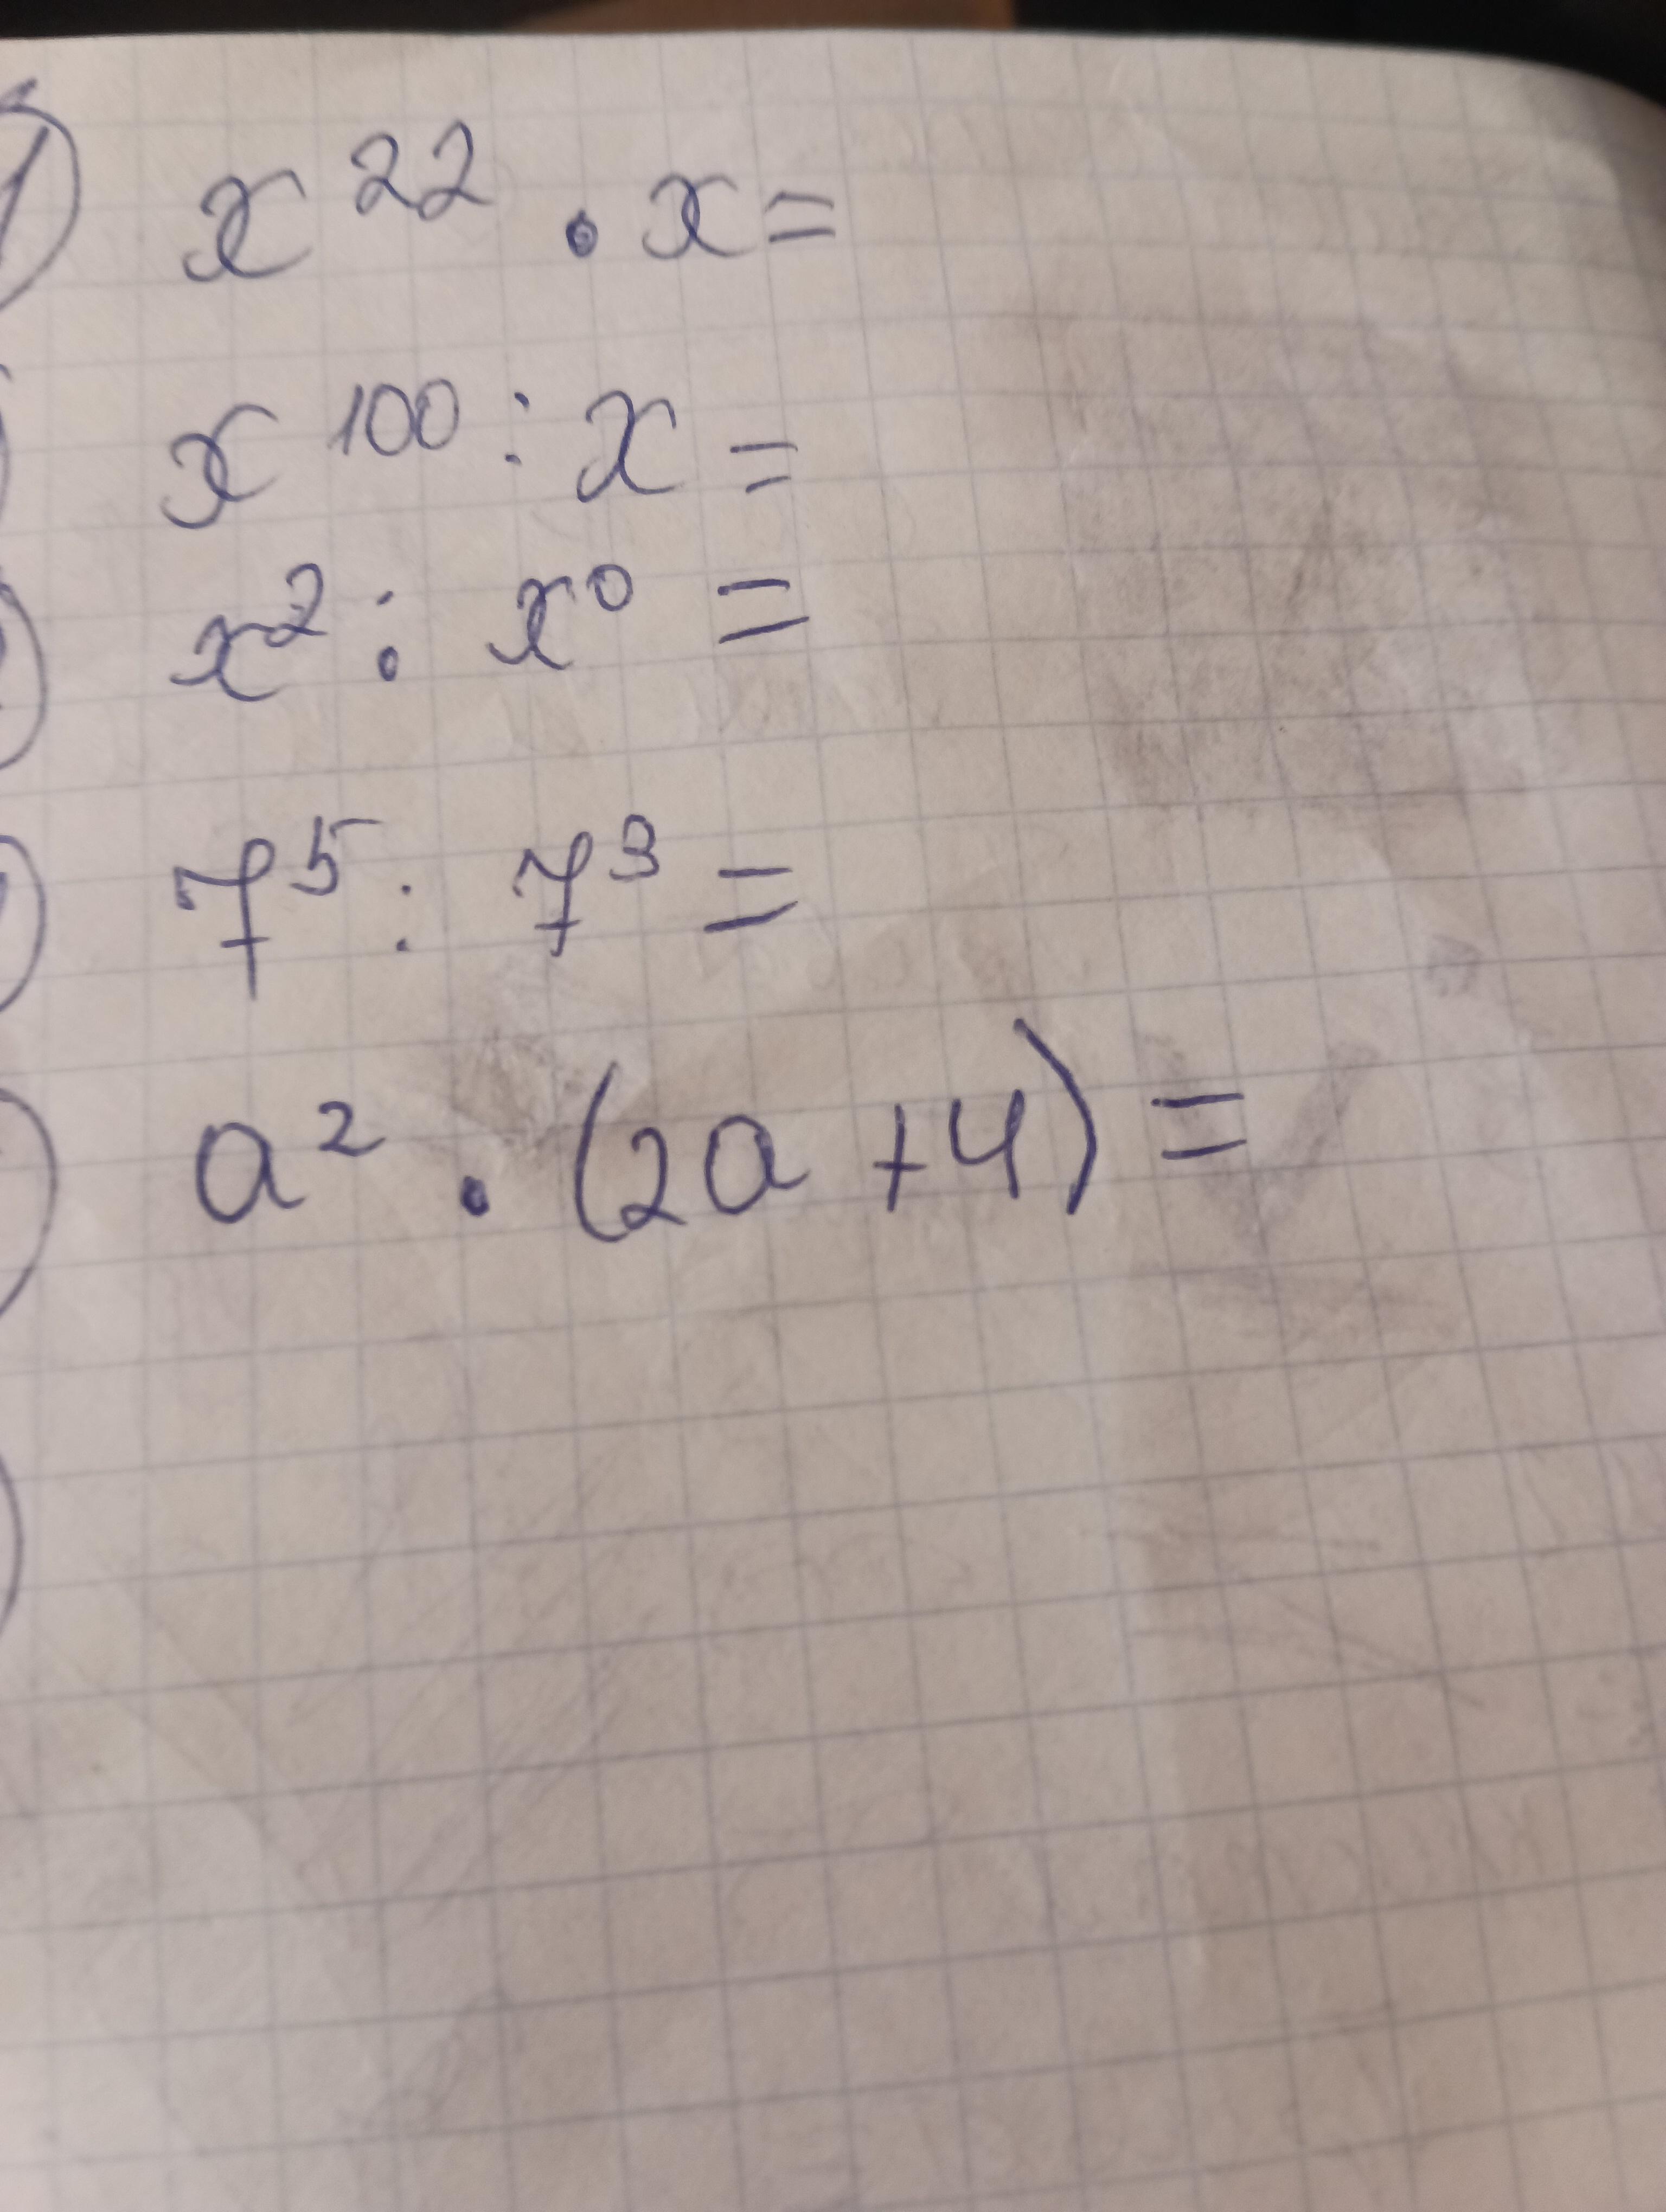 1) x²² · x =
x¹⁰⁰ : x =
x² : x⁰ =
7⁵ : 7³ =
a² · (2a + 4) =